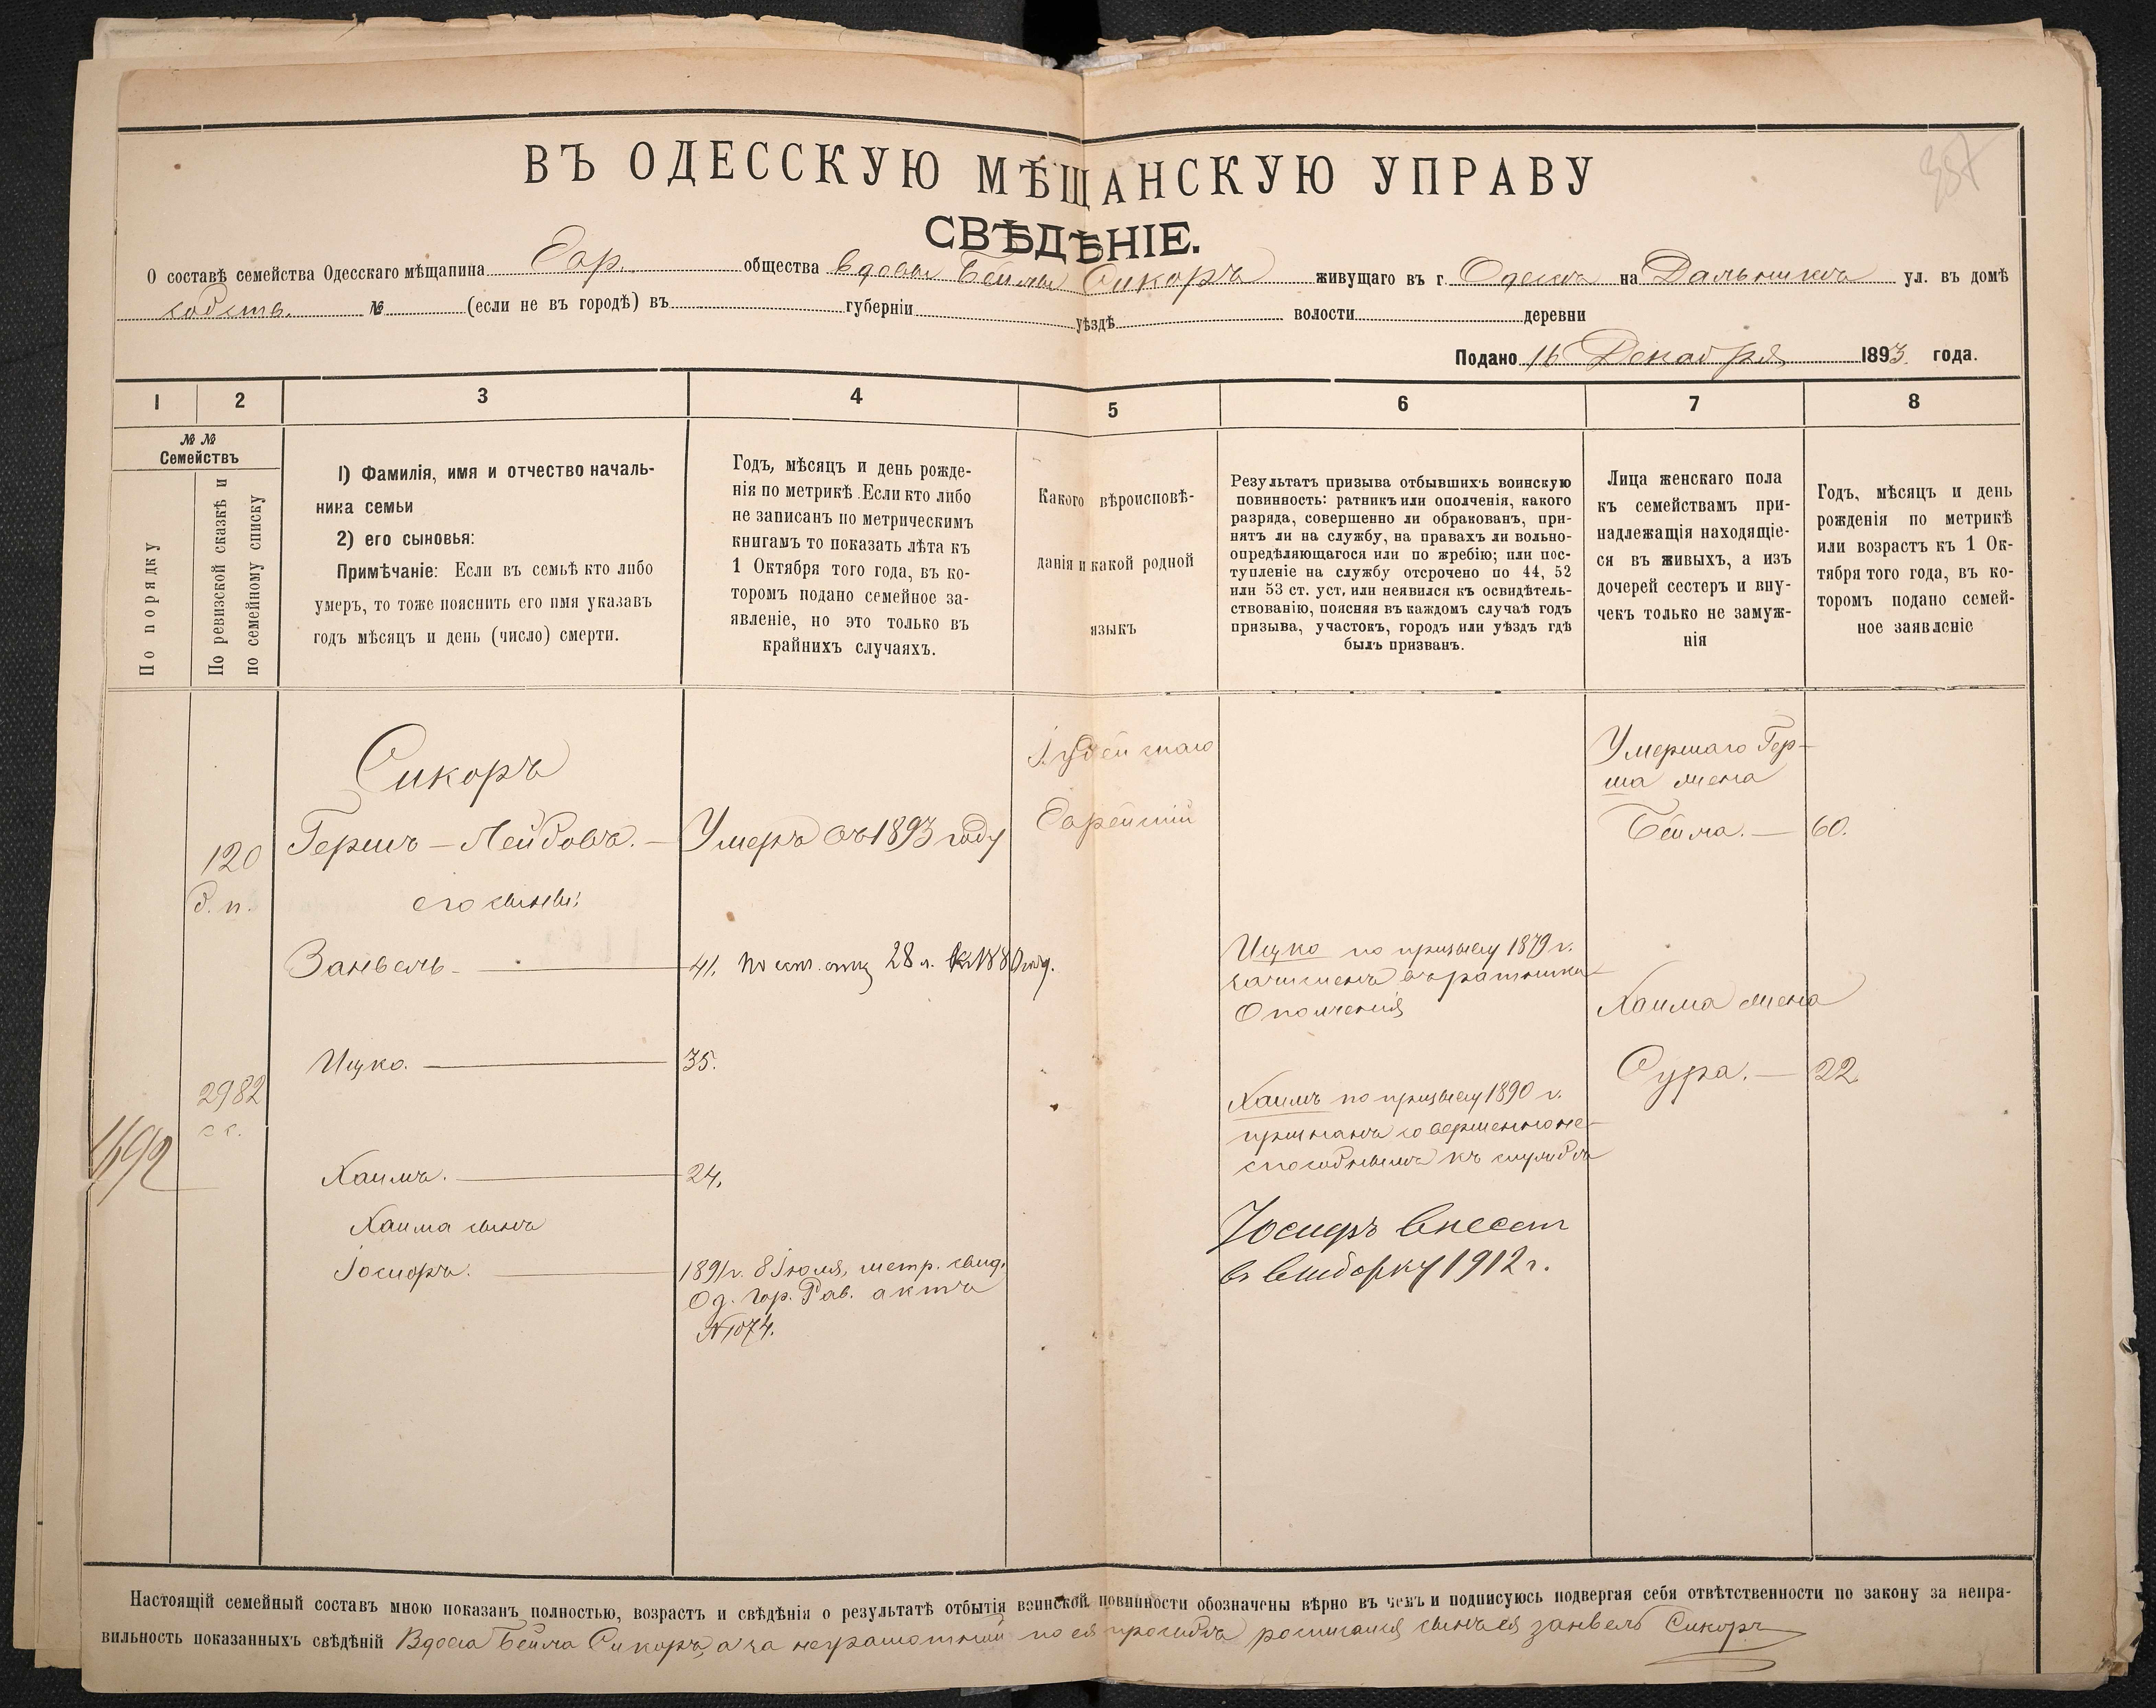 387
ВЪ ОДЕССКУЮ МѢЩАНСКУЮ УПРАВУ
СВѢДѢНІЕ.
О составѣ семейства Одесскаго мѣщанина Евр. общества вдовы Бейлы Сикоръ живущаго въ г. Одессѣ на Дальницкой ул. въ домѣ
собств. № (если не въ городѣ) въ губерніи уѣздѣ волости деревни
Подано 16 Декабря 1893 года.
1 2 3 4 5 6 7 8
№ №
Семействъ
По порядку
По ревизской сказкѣ и
по семейному списку
1) Фамилія, имя и отчество началь-
ника семьи
2) его сыновья:
Примѣчаніе: Если въ семьѣ кто либо
умеръ, то тоже пояснить его имя указавъ
годъ мѣсяцъ и день (число) смерти.
Годъ, мѣсяцъ и день рожде-
нія по метрикѣ. Если кто либо
не записанъ по метрическимъ
книгамъ то показать лѣта къ
1 Октября того года, въ ко-
торомъ подано семейное за-
явленіе, но это только въ
крайнихъ случаяхъ.
Какого вѣроисповѣ-
данія и какой родной
языкъ
Результатъ призыва отбывшихъ воинскую
повинность: ратникъ или ополченія, какого
разряда, совершенно ли обракованъ, при-
нятъ ли на службу, на правахъ ли вольно-
опредѣляющагося или по жребію; или пос-
тупленіе на службу отсрочено по 44, 52
или 53 ст. уст, или неявился къ освидѣтель-
ствованію, поясняя въ каждомъ случаѣ годъ
призыва, участокъ, городъ или уѣздъ гдѣ
былъ призванъ.
Лица женскаго пола
къ семействамъ при-
надлежащія находящіе-
ся въ живыхъ, а изъ
дочерей сестеръ и вну-
чекъ только не замуж-
нія
Годъ, мѣсяцъ и день
рожденія по метрикѣ
или возрастъ къ 1 Ок-
тября того года, въ ко-
торомъ подано семей-
ное заявленіе
Сикоръ
Іудейскаго
Еврейскій
Умершаго Гер-
ша жена
120
д. п.
Гершъ — Лейбовъ. — Умеръ въ 1893 году
Бейла. — 60.
его сыновья:
Занвель — 41. по 28 л. 1880 год.
Ицко по призыву 1879 г.
зачисленъ въ ратники
Ополченія
Хаима жена
Ицко. — 35.
Сура. — 22.
2982
с с.
1692
Хаимъ по призыву 1890 г.
признанъ совершенно не-
способнымъ къ службѣ
Хаимъ. — 24.
Хаима сынъ
Іосифъ. — 1891 г. 8 Іюля, метр. свид.
Од. Гор. Рав. актъ
№ 1074.
Іосифъ внесен
в выборку 1912 г.
Настоящій семейный составъ мною показанъ полностью, возрастъ и свѣдѣнія о результатѣ отбытія воинской повинности обозначены вѣрно въ чемъ и подписуюсь подвергая себя отвѣтственности по закону за непра-
вильность показанныхъ свѣдѣній Вдова Бейла Сикоръ, а за неграмотной по ея просьбѣ росписался сынъ ея Занвель Сикоръ